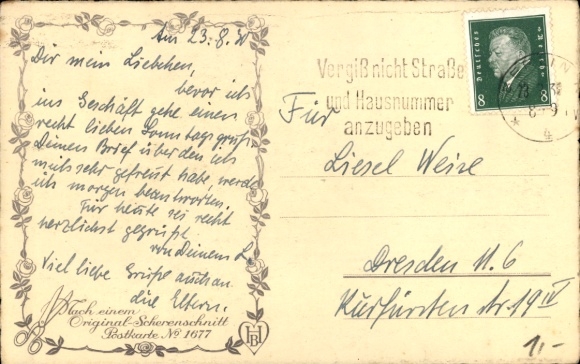 Am 23.8.
Dir mein Liebchen,
bevor ich
ins Geschäft gehe einen
recht lieben Sonntagsgruß.
Deinen Brief über den ich
mich sehr gefreut habe, werde
ich morgen beantworten.
Für heute sei recht
herzlichst gegrüßt
von Deinem L.
Viel liebe Grüße auch an
die Eltern.
Nach einem
Original-Scherenschnitt
Postkarte No 1677
HB
Vergiß nicht Straße
und Hausnummer
anzugeben
Deutsches Reich
8 8
Für
Liesel Weise
Dresden N. 6
Kurfürstenstr. 19 IV
1,-